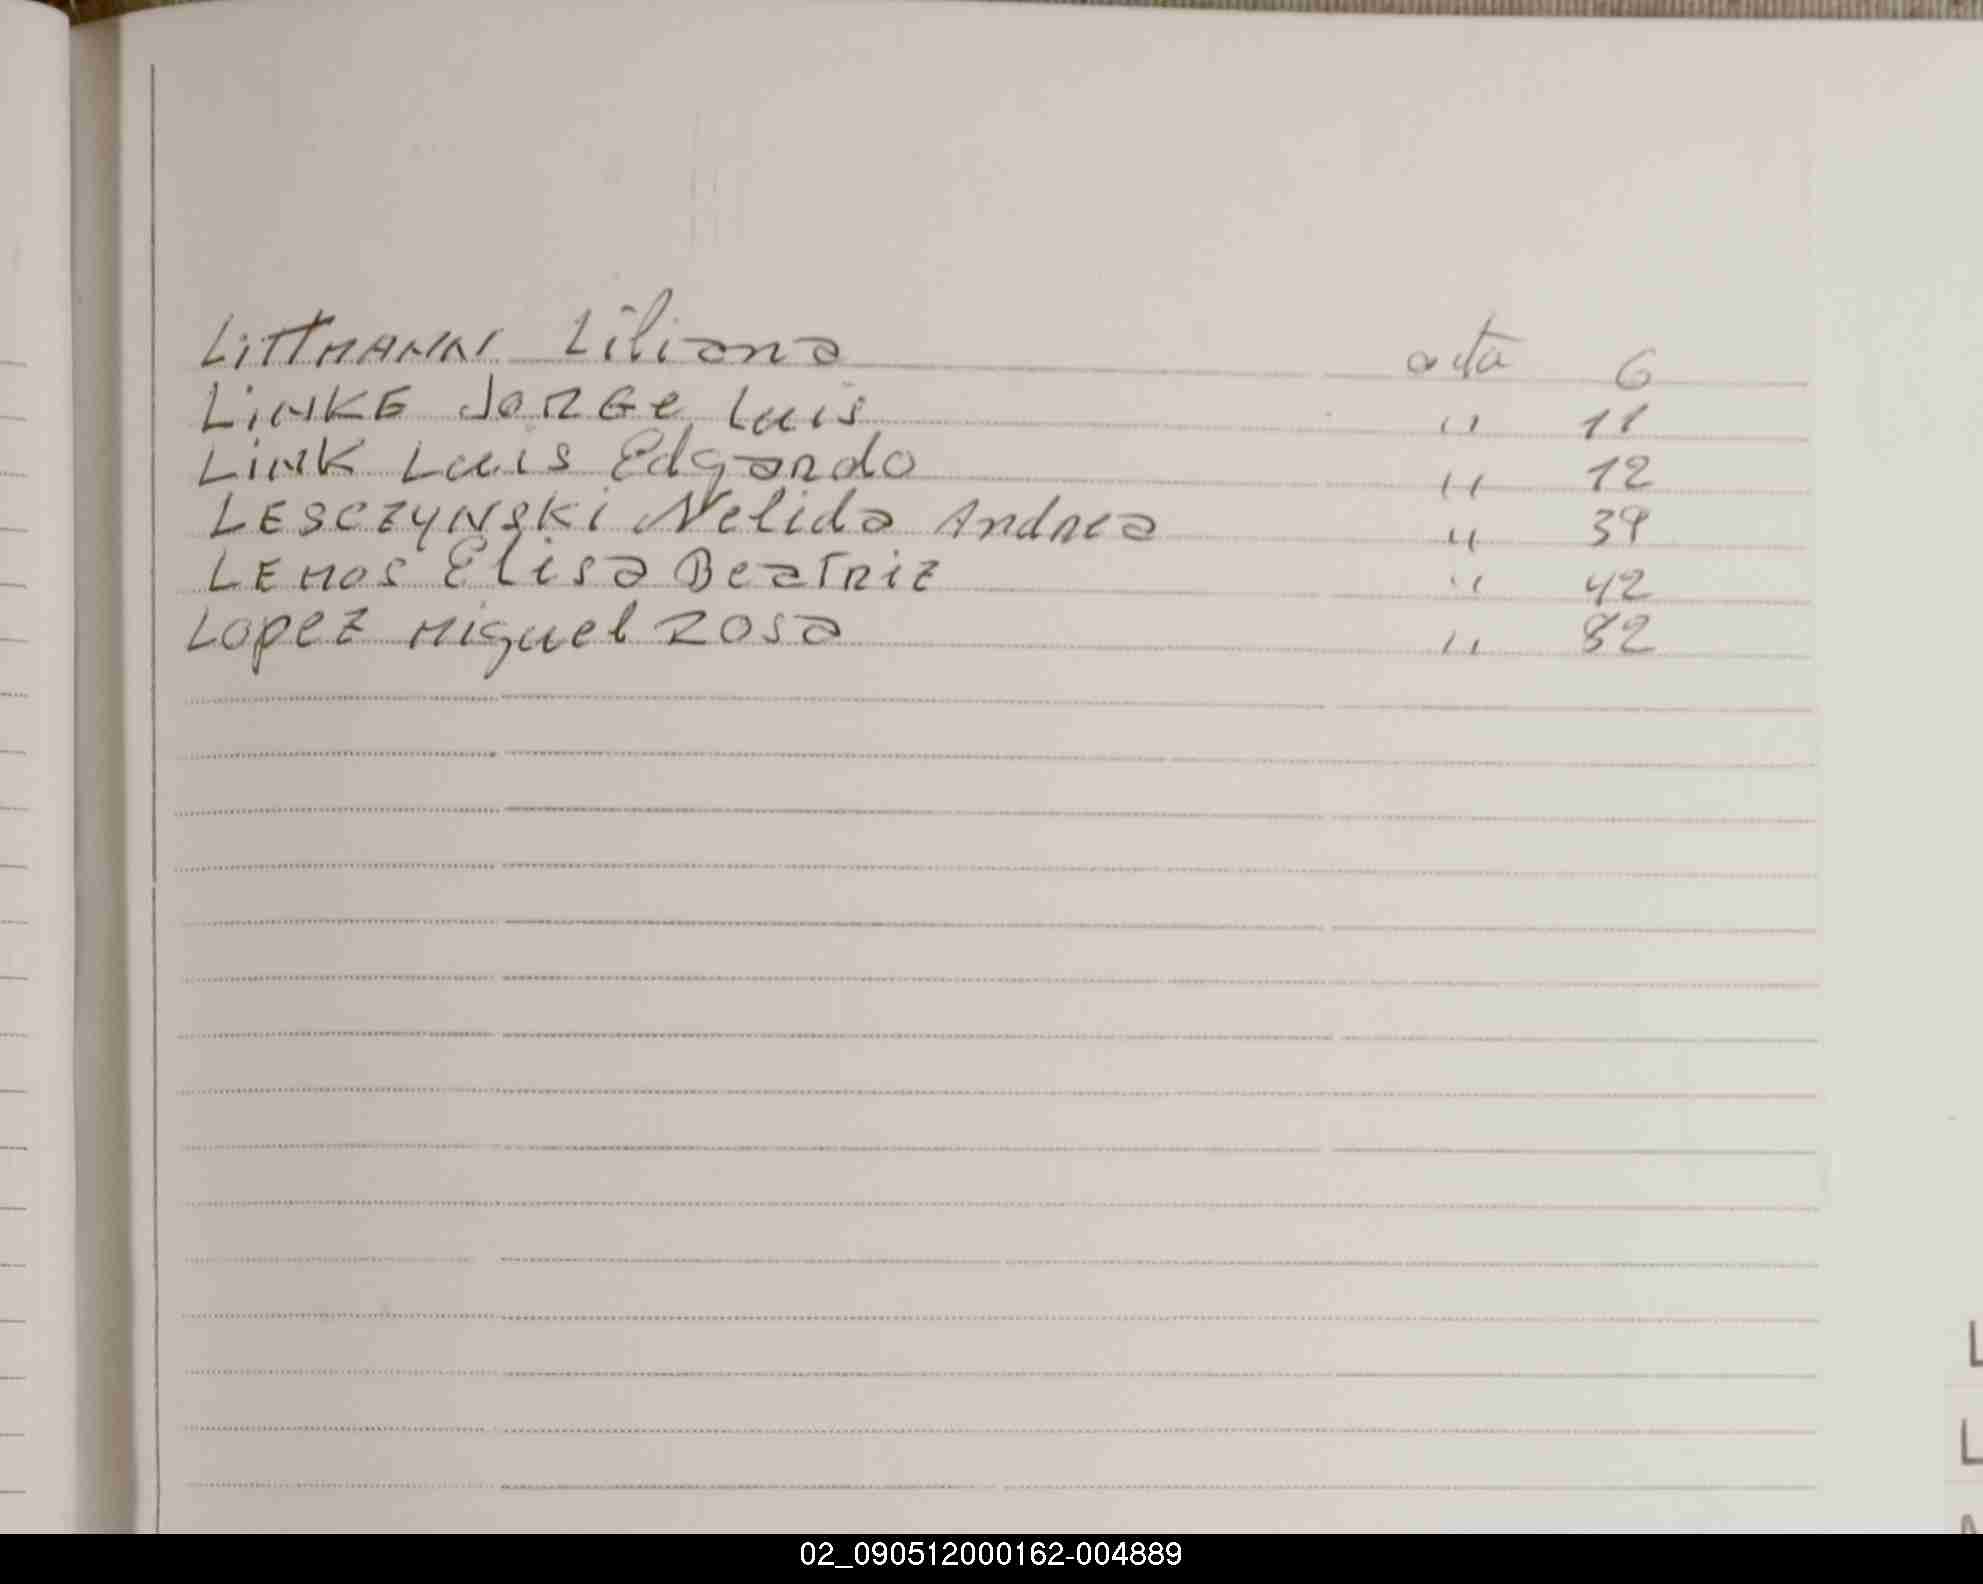 Littmann Liliana acta 6
Linke Jorge Luis " 11
Link Luis Edgardo " 12
Lesczynski Nelida Andrea " 39
Lemos Elisa Beatriz " 42
Lopez Miguel Rosa " 82
L
L
02_090512000162-004889